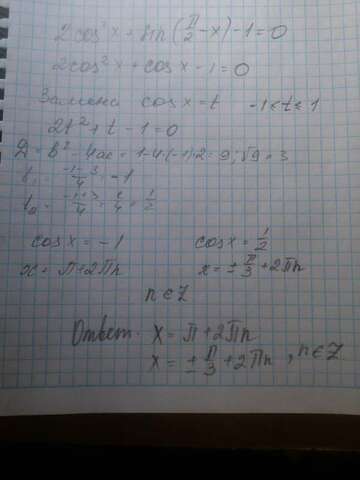 2cos²x + sin(π/2 - x) - 1 = 0
2cos²x + cosx - 1 = 0
Замена cosx = t -1 < t ≤ 1
2t² + t - 1 = 0
D = b² - 4ac = 1 - 4·(-1)·2 = 9; √9 = 3
t₁ = (-1-3)/4 = -1
t₂ = (-1+3)/4 = 2/4 = 1/2
cosx = -1 cosx = 1/2
x = π + 2πn x = ± π/3 + 2πn
n ∈ Z
Ответ: x = π + 2πn
x = ± π/3 + 2πn, n ∈ Z